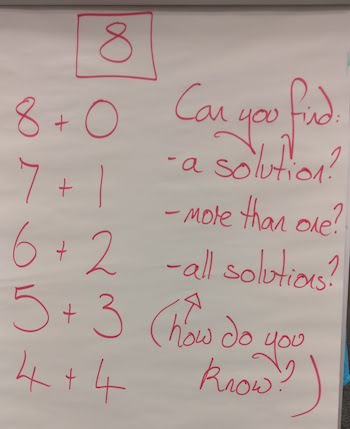 8
8 + 0
7 + 1
6 + 2
5 + 3
4 + 4
Can you find:
- a solution?
- more than one?
- all solutions?
(how do you
know?)